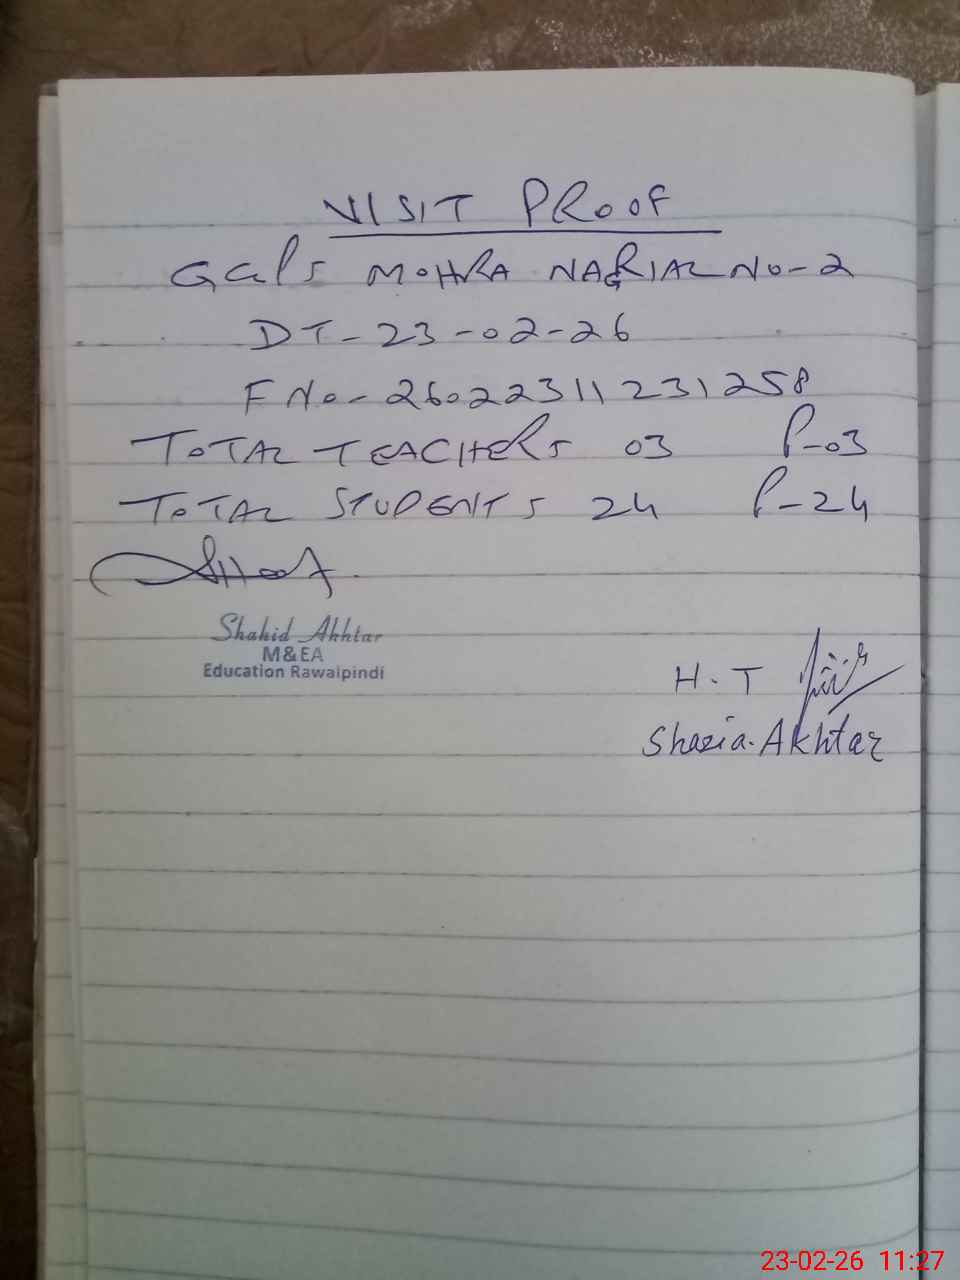 VISIT PROOF
GGPS MOHRA NAGRIAL NO-2
DT-23-02-26
F No-26022311231258
TOTAL TEACHERS 03 P-03
TOTAL STUDENTS 24 P-24
Shahid Akhtar
M&EA
Education Rawalpindi
H.T
Shazia.Akhtar
23-02-26 11:27